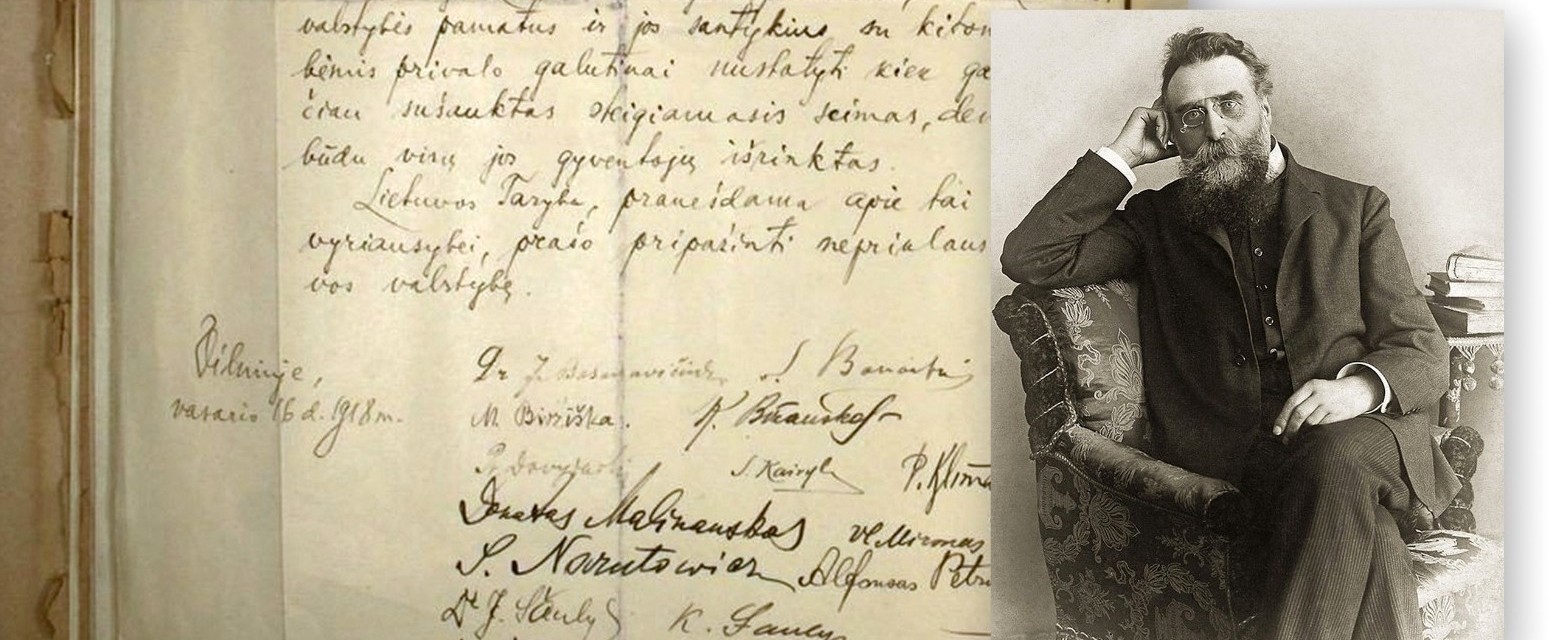 valstybės pamatus ir jos santykius su kitom
bėmis privalo galutinai nustatyti kiek ga
čiau sušauktas steigiamasis seimas, dem
būdu visų jos gyventojų išrinktas.
Lietuvos Taryba, pranešdama apie tai
vyriausybei, prašo pripažinti nepriklaus
vos valstybę.
Vilniuje,
vasario 16 d. 1918 m.
Dr J. Basanavičius S. Banaitis
M. Biržiška. K. Bizauskas
P. Dovydaitis S. Kairys P. Klima
Donatas Malinauskas Vl. Mironas
S. Narutowicz Alfonsas Petru
Dr J. Šaulys K. Šaulys